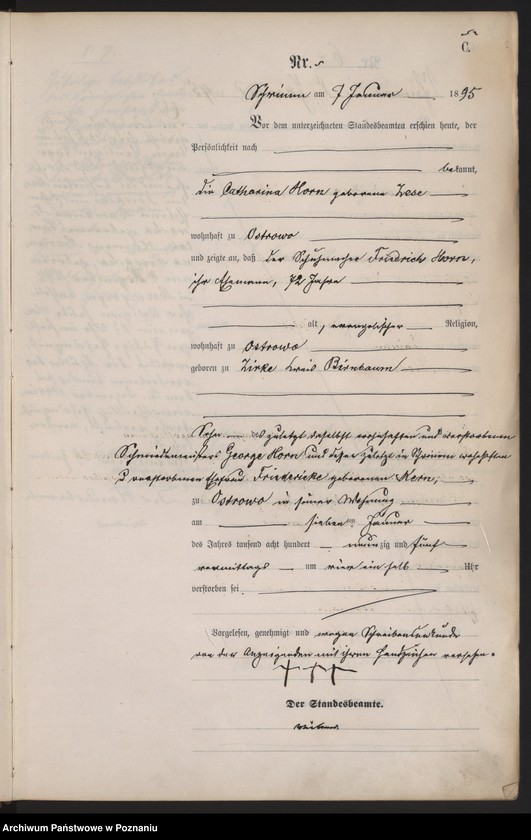 C.
Nr. 5
Schrimm am 7 Januar 1895
Vor dem unterzeichneten Standesbeamten erschien heute, der
Persönlichkeit nach
bekannt,
die Catharina Horn geborene Lese
wohnhaft zu Ostrowo
und zeigte an, daß der Schuhmacher Friedrich Horn,
ihr Ehemann, 72 Jahre
alt, evangelischer Religion,
wohnhaft zu Ostrowo
geboren zu Zirke Kreis Birnbaum
Sohn des zuletzt daselbst wohnhaften und verstorbenen
Schmiedemeisters George Horn und dessen zuletzt in Schrimm wohnhaften
u verstorbenen Ehefrau Friedericke geborenen Kern,
zu Ostrowo in seiner Wohnung
am sieben ten Januar
des Jahres tausend acht hundert neunzig und fünf
vormittags um vier ein halb Uhr
verstorben sei.
Vorgelesen, genehmigt und wegen Schreibensunkunde
von der Anzeigenden mit ihrem Handzeichen versehen.
+++
Der Standesbeamte.
Archiwum Państwowe w Poznaniu